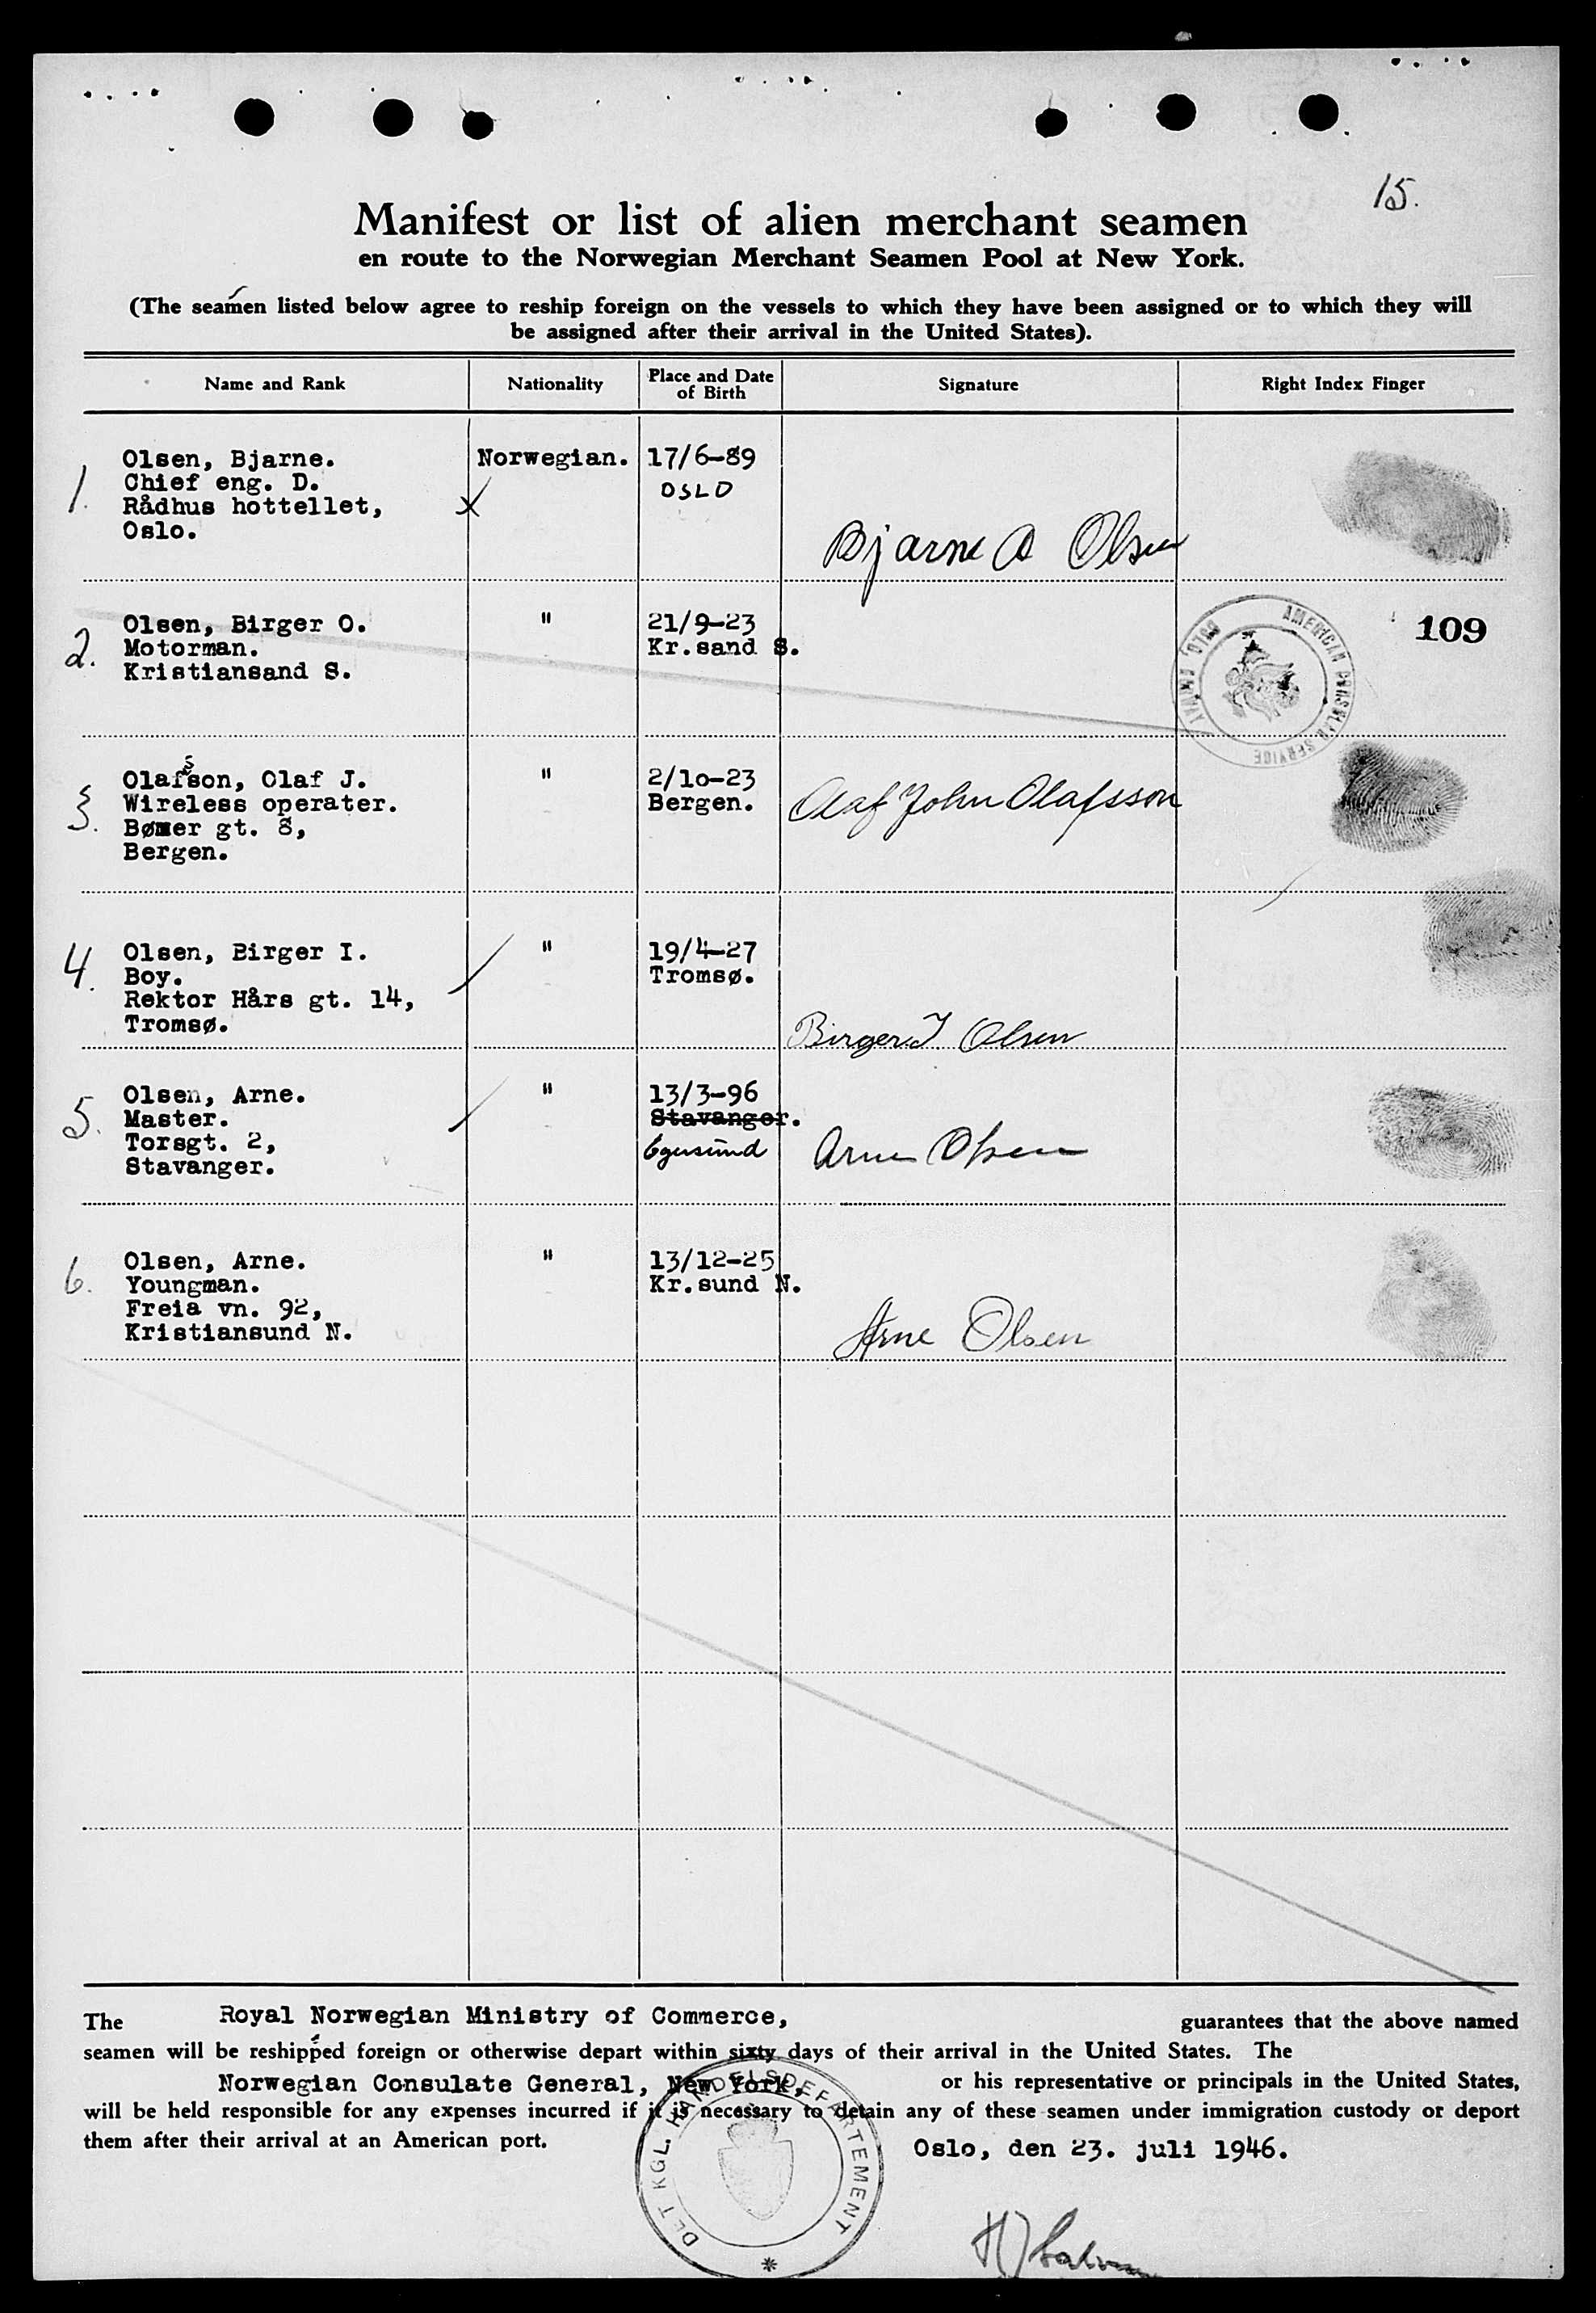 15.
Manifest or list of alien merchant seamen
en route to the Norwegian Merchant Seamen Pool at New York.
(The seamen listed below agree to reship foreign on the vessels to which they have been assigned or to which they will
be assigned after their arrival in the United States).
Name and Rank
Nationality
Place and Date
of Birth
Signature
Right Index Finger
1.
Olsen, Bjarne.
Chief eng. D.
Rådhus hottellet,
Oslo.
x
Norwegian.
17/6-89
OSLO
Bjarne A Olsen
2.
Olsen, Birger O.
Motorman.
Kristiansand S.
"
21/9-23
Kr.sand S.
AMERICAN CONSULAR SERVICE
OSLO, NORWAY
109
3.
Olafsson, Olaf J.
Wireless operater.
Bømer gt. 8,
Bergen.
"
2/10-23
Bergen.
Olaf John Olafsson
4.
Olsen, Birger I.
Boy.
Rektor Hårs gt. 14,
Tromsø.
"
19/4-27
Tromsø.
Birger I Olsen
5.
Olsen, Arne.
Master.
Torsgt. 2,
Stavanger.
"
13/3-96
Stavanger.
Egersund
Arne Olsen
6.
Olsen, Arne.
Youngman.
Freia vn. 92,
Kristiansund N.
"
13/12-25
Kr.sund N.
Arne Olsen
The Royal Norwegian Ministry of Commerce, guarantees that the above named
seamen will be reshipped foreign or otherwise depart within sixty days of their arrival in the United States. The
Norwegian Consulate General, New York, or his representative or principals in the United States,
will be held responsible for any expenses incurred if it is necessary to detain any of these seamen under immigration custody or deport
them after their arrival at an American port.
Oslo, den 23. juli 1946.
DET KGL. HANDELSDEPARTEMENT